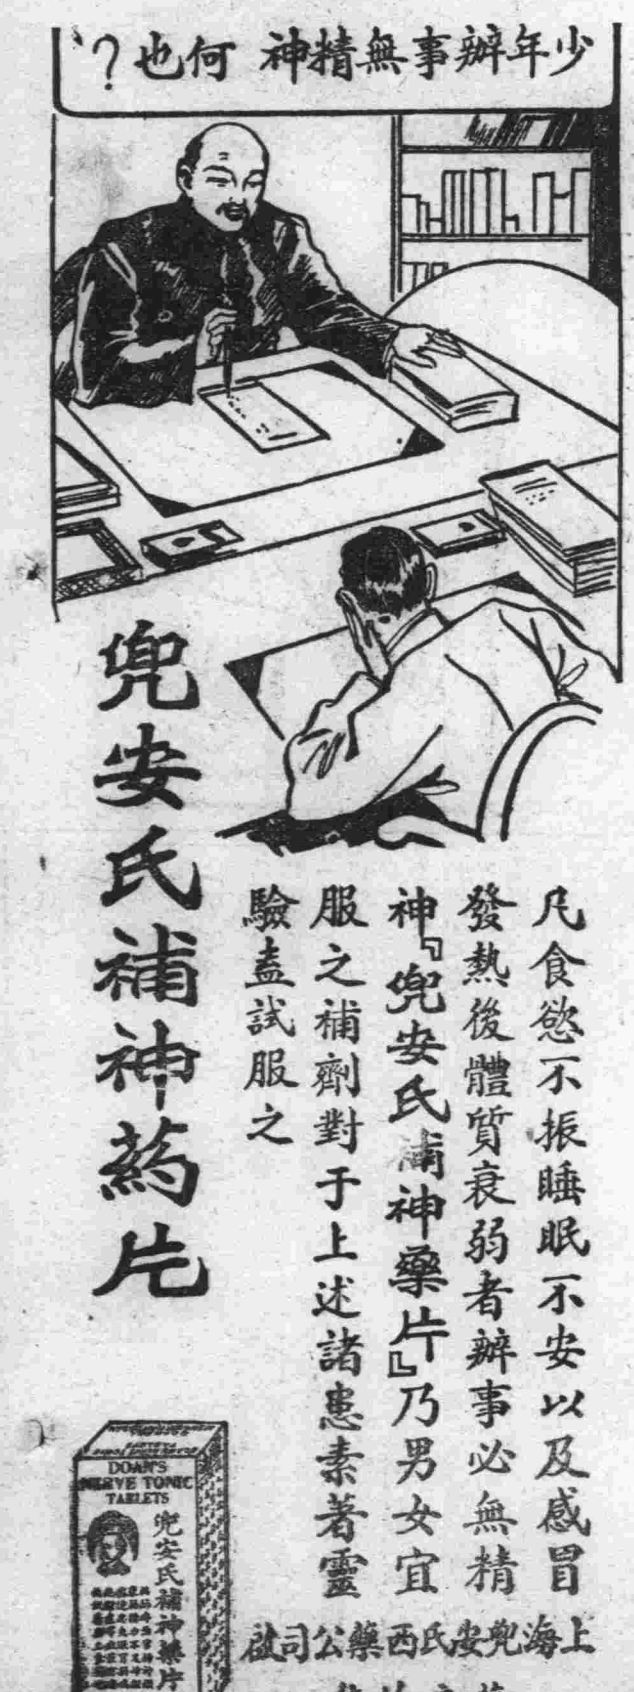 少年辦事無精神 何也?
兜安氏補神葯片
凡食慾不振睡眠不安以及感冒
發熱後體質衰弱者辦事必無精
神『兜安氏補神藥片』乃男女宜
服之補劑對于上述諸患素著靈
驗盍試服之
上海兜安氏西藥公司啟
DOAN'S
NERVE TONIC
TABLETS
兜安氏補神藥片